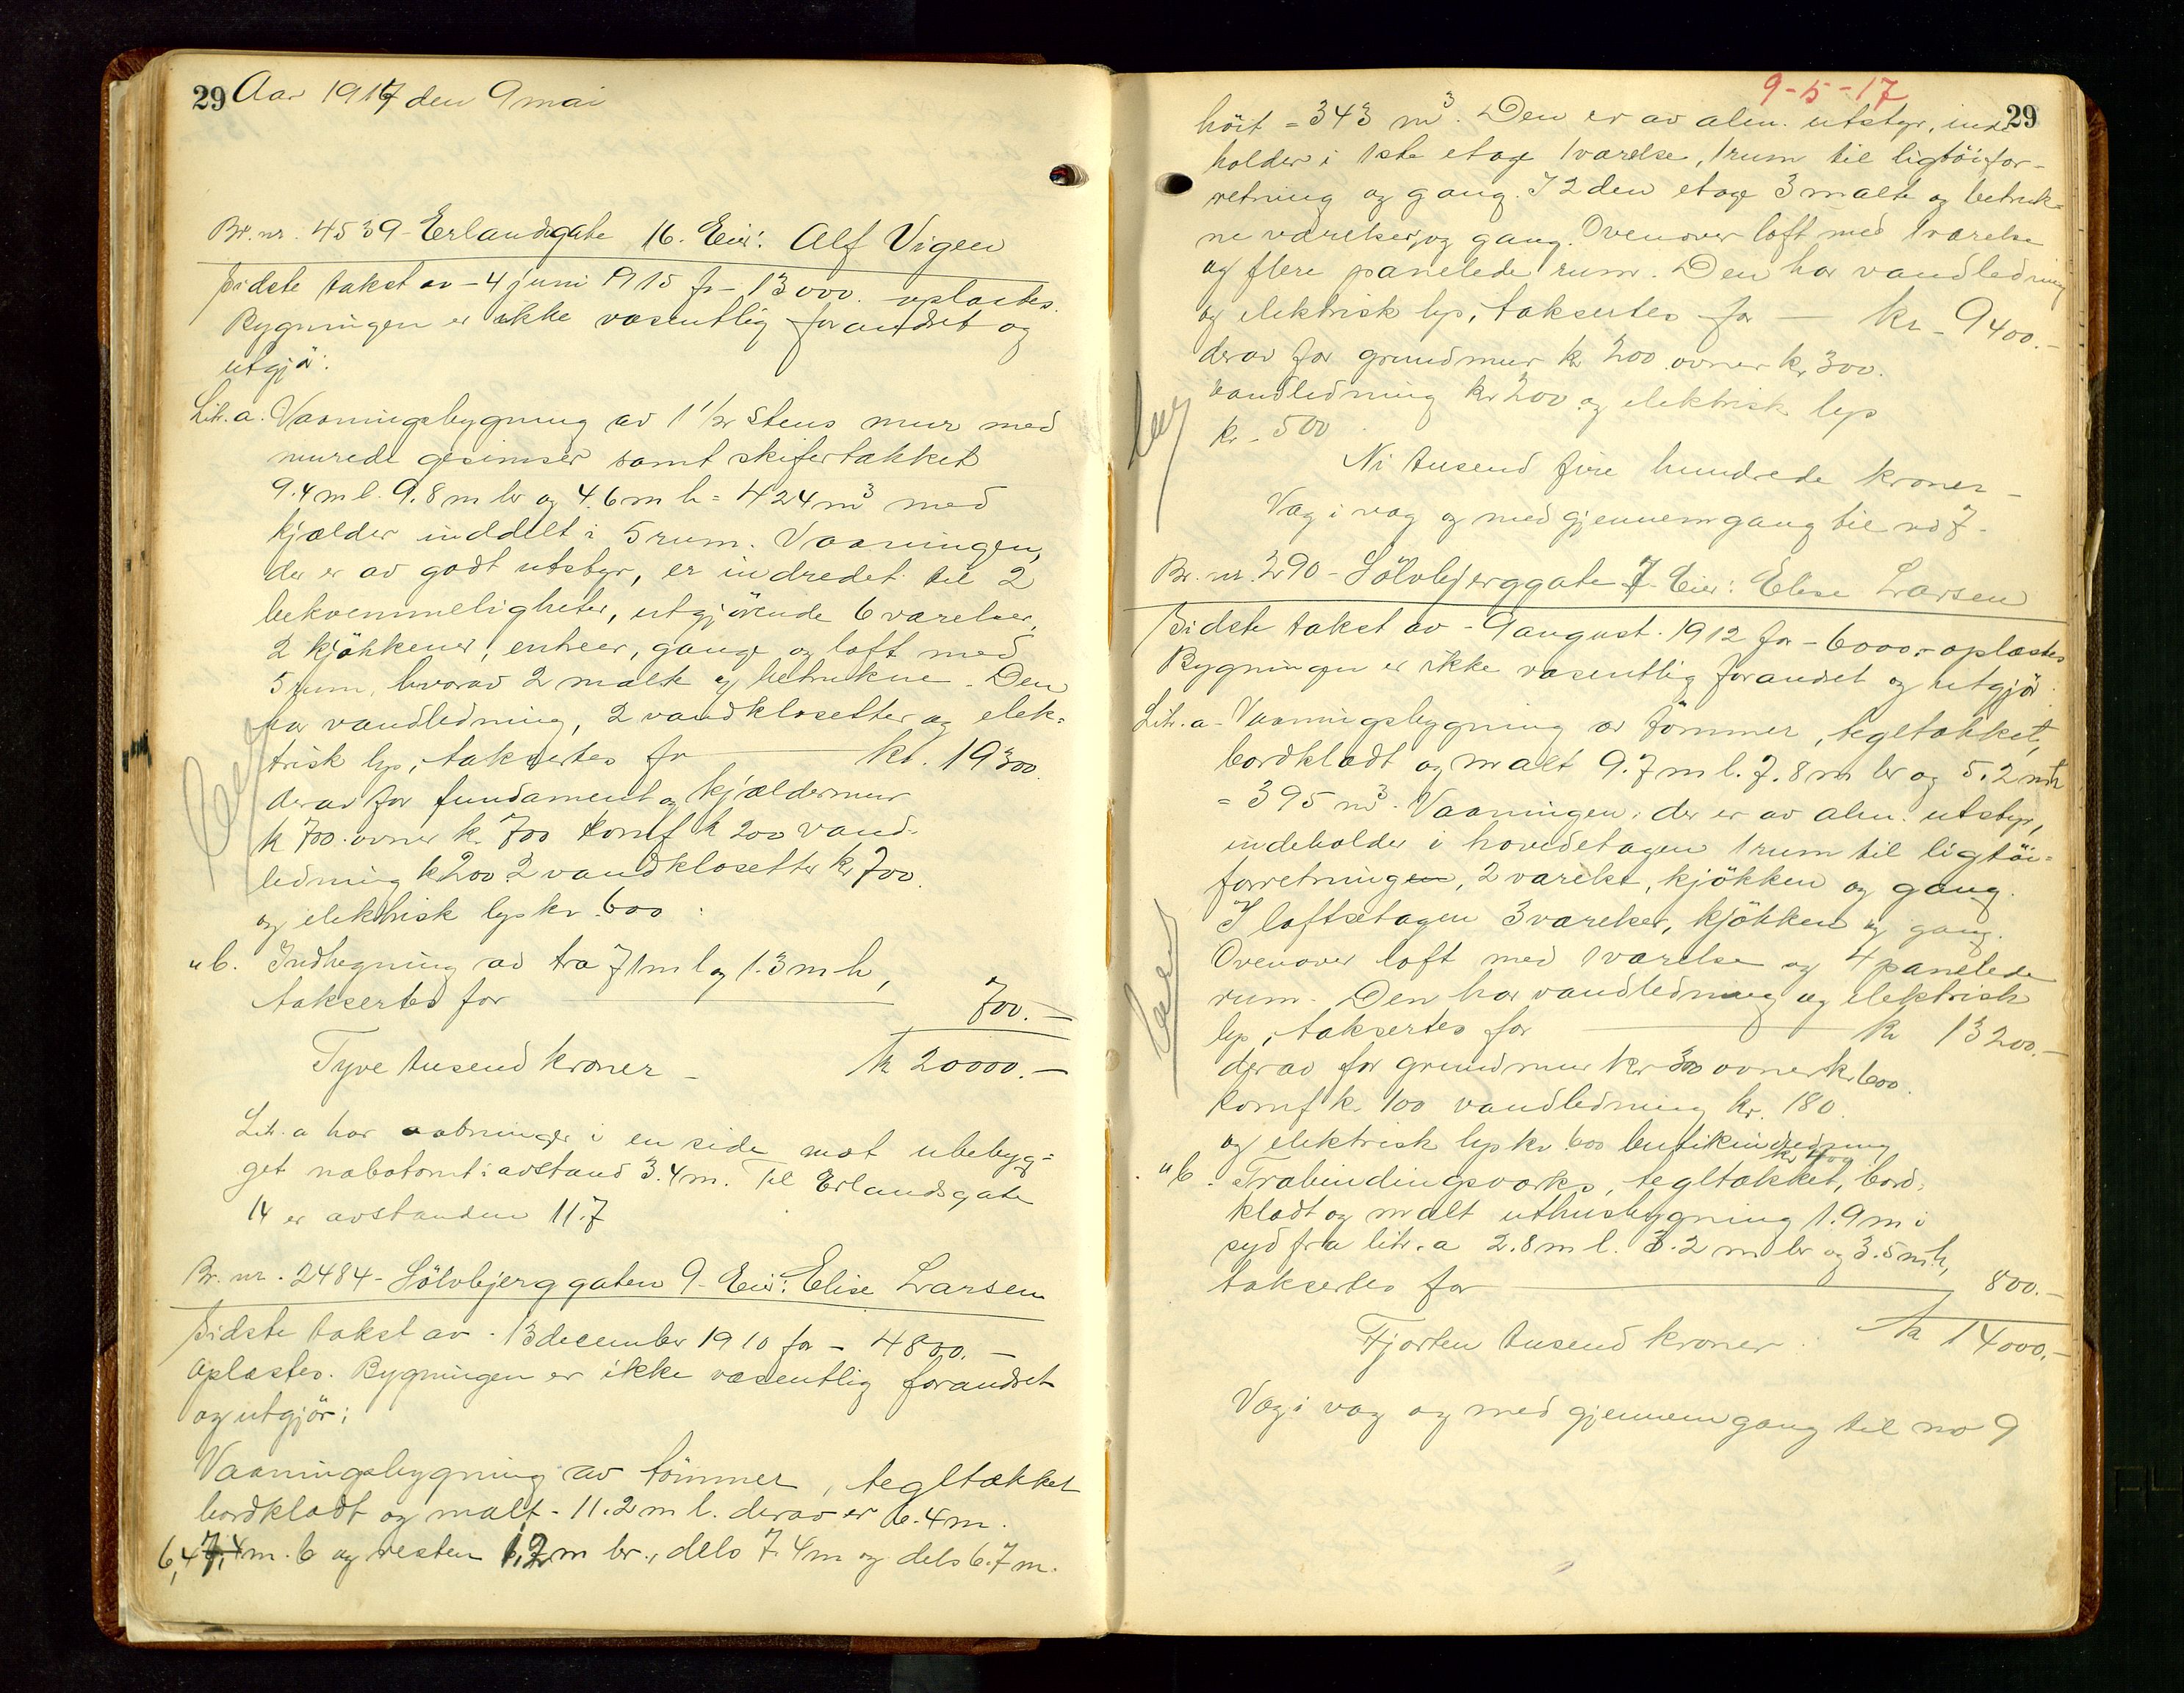 29 Aar 1917 den 9 mai
Br. nr. 4539 - Erlandsgate 16. Eier: Alf Vigen
Sidste takst av - 4 juni 1915 fr - 13000. oplæstes.
Bygningen er ikke væsentlig forandret og
utgjør:
Litr. a. Vaaningsbygning av 1 1/2 Stens mur med
murede gesimser samt skifertækket
9.4 m l. 9.8 m br og 4.6 m h = 424 m³ med
kjælder inddelt i 5 rum. Vaaningen,
der er av godt utstyr, er indredet til 2
bekvemmeligheter, utgjørende 6 værelser,
2 kjøkkener, entreer, gange og loft med
5 rum, hvorav 2 malte og betrukne. Den
har vandledning, 2 vandklosetter og elek=
trisk lys; taksertes for kr. 19300.
derav for fundament og kjældermur
kr 700. ovner kr. 700 komf kr 200 vand-
ledning kr 200 2 vandklosetter kr 700.
og elektrisk lys kr. 600.
" b. Indhegning av træ 71 m l og 1.3 m h,
taksertes for 700.-
Tyve tusend kroner - kr 20000.-
Litr. a har aabninger i en side mot ubebyg=
get nabotomt i avstand 3.4 m. Til Erlandsgate
14 er avstanden 11.7
Br. nr. 2484 - Sölvbjerggaten 9 - Eier: Elise Larsen
Sidste takst av - 13 december 1910 for - 4800.-
oplæstes. Bygningen er ikke væsentlig forandret
og utgjør:
Vaaningsbygning av tømmer, tegltækket
bordklædt og malt - 11.2 m l. derav er 6.4 m.
6,4 7,4 m. b og resten 1,2 m br., dels 7.4 m og dels 6.7 m.
9-5-17
29
höit = 343 m³. Den er av alm. utstyr, inde
holder i 1ste etage 1 værelse, 1 rum til ligtöifor-
retning og gang. I 2den etage 3 malte og betruk=
ne værelser, og gang. Ovenover loft med 1 værelse
og flere panelede rum. Den har vandledning
og elektrisk lys; taksertes for - kr - 9400.-
derav for grundmur kr 200 ovner kr 300.
vandledning kr 200 og elektrisk lys
kr. 500
Ni tusend fire hundrede kroner -
Væg i væg og med gjennemgang til no 7.
Br. nr. 290 - Sölvbjerggate 7 - Eier: Elise Larsen
Sidste takst av - 9 august. 1912 for - 6000.- oplæstes
Bygningen er ikke væsentlig forandret og utgjør:
Litr. a - Vaaningsbygning av tömmer, tegltækket,
bordklædt og malt 9.7 m l. 7.8 m br og 5.2 m h
= 395 m³. Vaaningen, der er av alm. utstyr,
indeholder i hovedetagen 1 rum til ligtöi=
forretningen, 2 værelse, kjökken og gang.
I loftsetagen 3 værelser, kjökken og gang.
Ovenover loft med 1 værelse og 4 panelede
rum. Den har vandledning og elektrisk
lys; taksertes for kr 13200.-
derav for grundmur kr 300 ovner kr. 600.
komf kr. 100 vandledning kr. 180.
og elektrisk lys kr. 600 butikindredning
kr 400
" b. Træbindingsverks, tegltækket, bord-
klædt og malt uthusbygning 1.9 m i
syd fra litr. a 2.8 m l. 3.2 m br og 3.5 m h,
taksertes for 800.-
Fjorten tusend kroner. kr 14000.-
Væg i væg og med gjennemgang til no 9